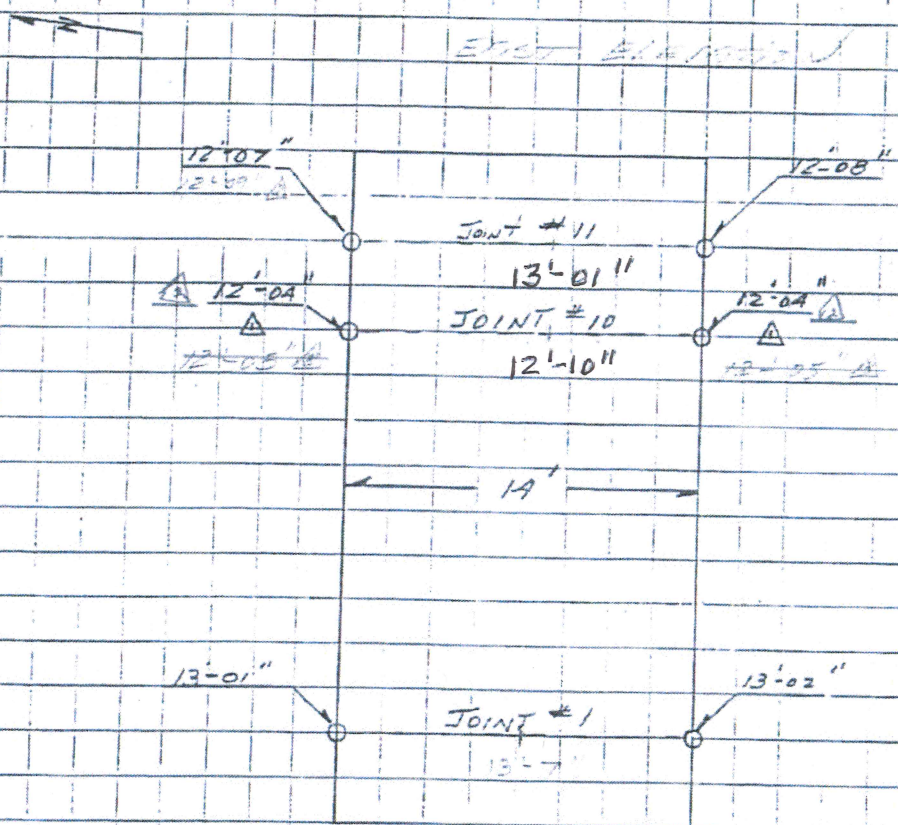 N
EAST ELEVATION
12'-07"
12'-08"
JOINT #11
13'-01"
12'-04"
12'-04"
JOINT #10
12'-05"
12'-10"
12'-05"
14'
13'-01"
13'-02"
JOINT #1
13'-7